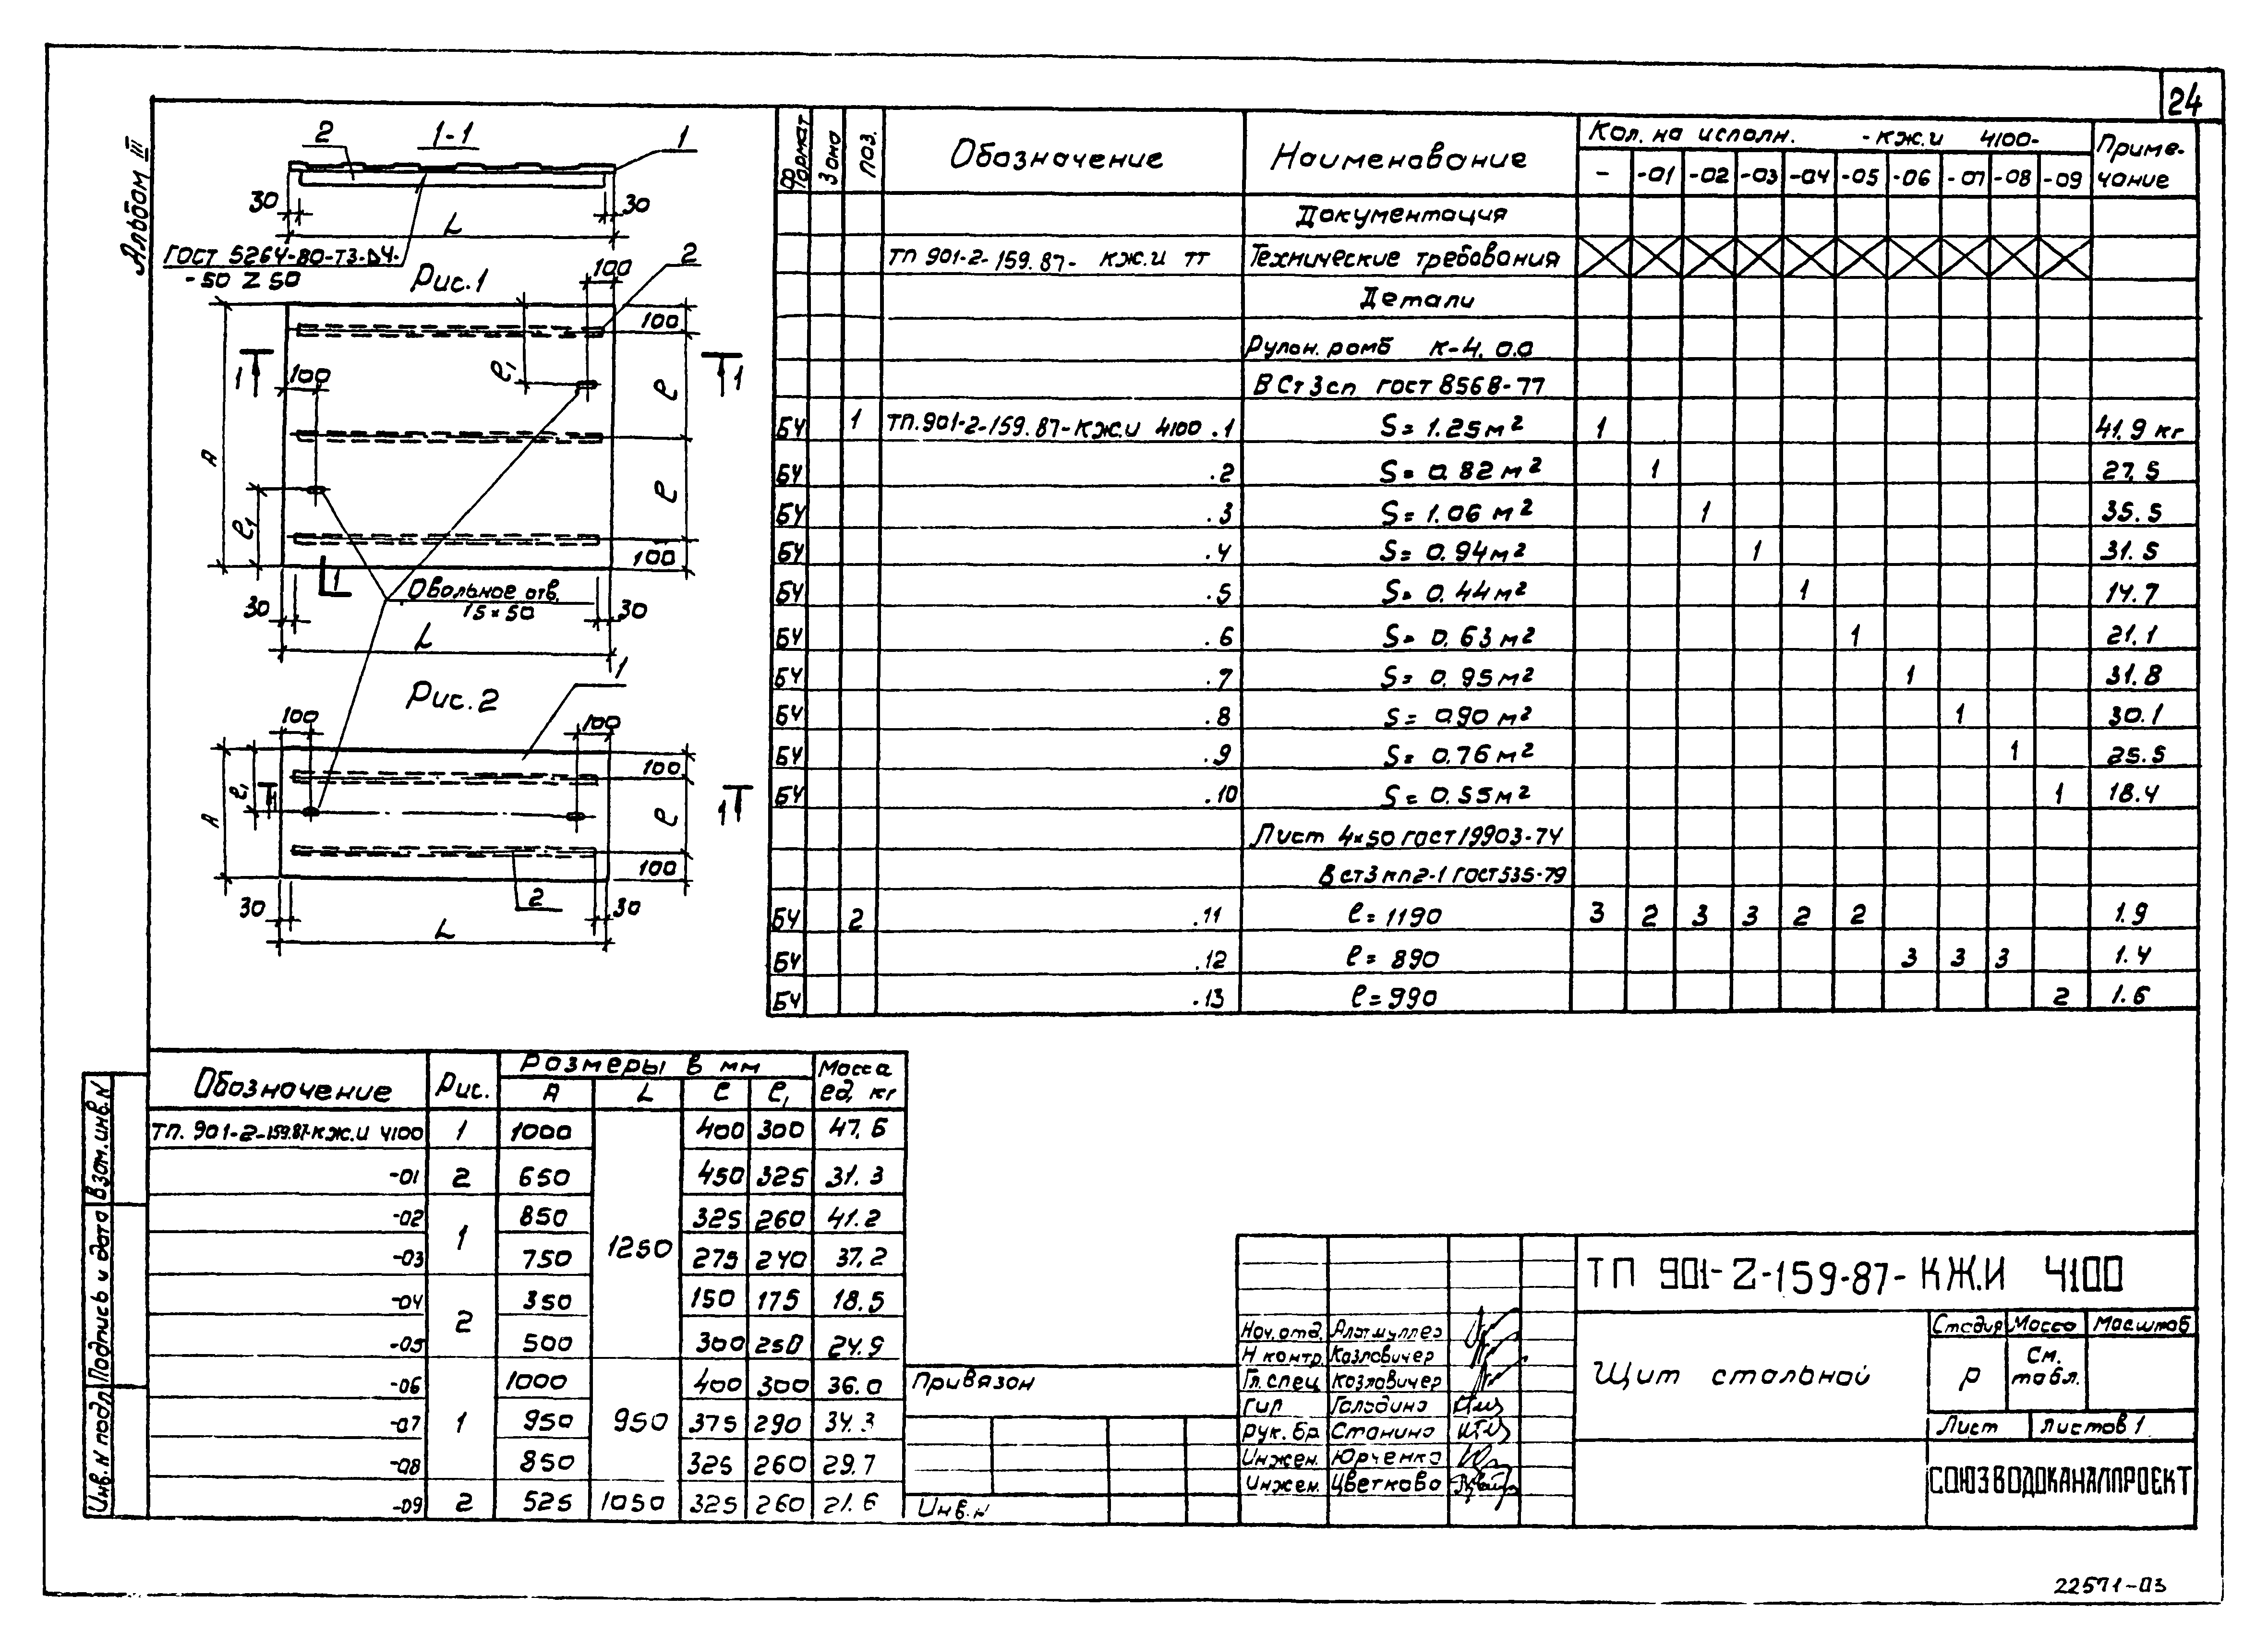 24
Альбом III
2 1-1 1
30 30
L
ГОСТ 5264-80-Т3-Δ4-
-50 Z 50
Рис.1
100 2
100
1 1
100
ℓ1 ℓ
А
ℓ
ℓ1
100
1
Овальное отв.
15×50
30 30
L
Рис.2
1
100 100
100
ℓ1 1 1
А ℓ
100
2
30 30
L
Формат Зона Поз. Обозначение Наименование Кол. на исполн. -КЖ.И 4100- Приме-
чание
- -01 -02 -03 -04 -05 -06 -07 -08 -09
Документация
ТП 901-2-159.87- КЖ.И ТТ Технические требования
Детали
Рулон. ромб К-4.0.0
В Ст 3 сп ГОСТ 8568-77
БЧ 1 ТП.901-2-159.87-КЖ.И 4100 .1 S= 1.25 м² 1 41.9 кг
БЧ .2 S= 0.82 м² 1 27.5
БЧ .3 S= 1.06 м² 1 35.5
БЧ .4 S= 0.94 м² 1 31.5
БЧ .5 S= 0.44 м² 1 14.7
БЧ .6 S= 0.63 м² 1 21.1
БЧ .7 S= 0.95 м² 1 31.8
БЧ .8 S= 0.90 м² 1 30.1
БЧ .9 S= 0.76 м² 1 25.5
БЧ .10 S= 0.55 м² 1 18.4
Лист 4×50 ГОСТ 19903-74
В ст 3 кп2-1 ГОСТ 535-79
БЧ 2 .11 ℓ= 1190 3 2 3 3 2 2 1.9
БЧ .12 ℓ= 890 3 3 3 1.4
БЧ .13 ℓ= 990 2 1.6
Обозначение Рис. Размеры в мм Масса
ед, кг
А L ℓ ℓ1
ТП. 901-2-159.87-КЖ.И 4100 1 1000 1250 400 300 47.6
-01 2 650 450 325 31.3
-02 1 850 325 260 41.2
-03 750 275 240 37.2
-04 2 350 150 175 18.5
-05 500 300 250 24.9
-06 1 1000 950 400 300 36.0
-07 950 375 290 34.3
-08 850 325 260 29.7
-09 2 525 1050 325 260 21.6
Взам.инв.N
Подпись и дата
Инв.N подл.
Привязан
Инв.N
Нач.отд.
Н контр. Козловичер
Гл.спец. Козловичер
ГИП Голодино
Рук.бр Станино
Инжен. Юрченко
Инжен. Цветкова
ТП 901-2-159-87-КЖ.И 4100
Щит стальной
Стадия Масса Масштаб
Р См.
табл.
Лист Листов 1
СОЮЗВОДОКАНАЛПРОЕКТ
22571-03